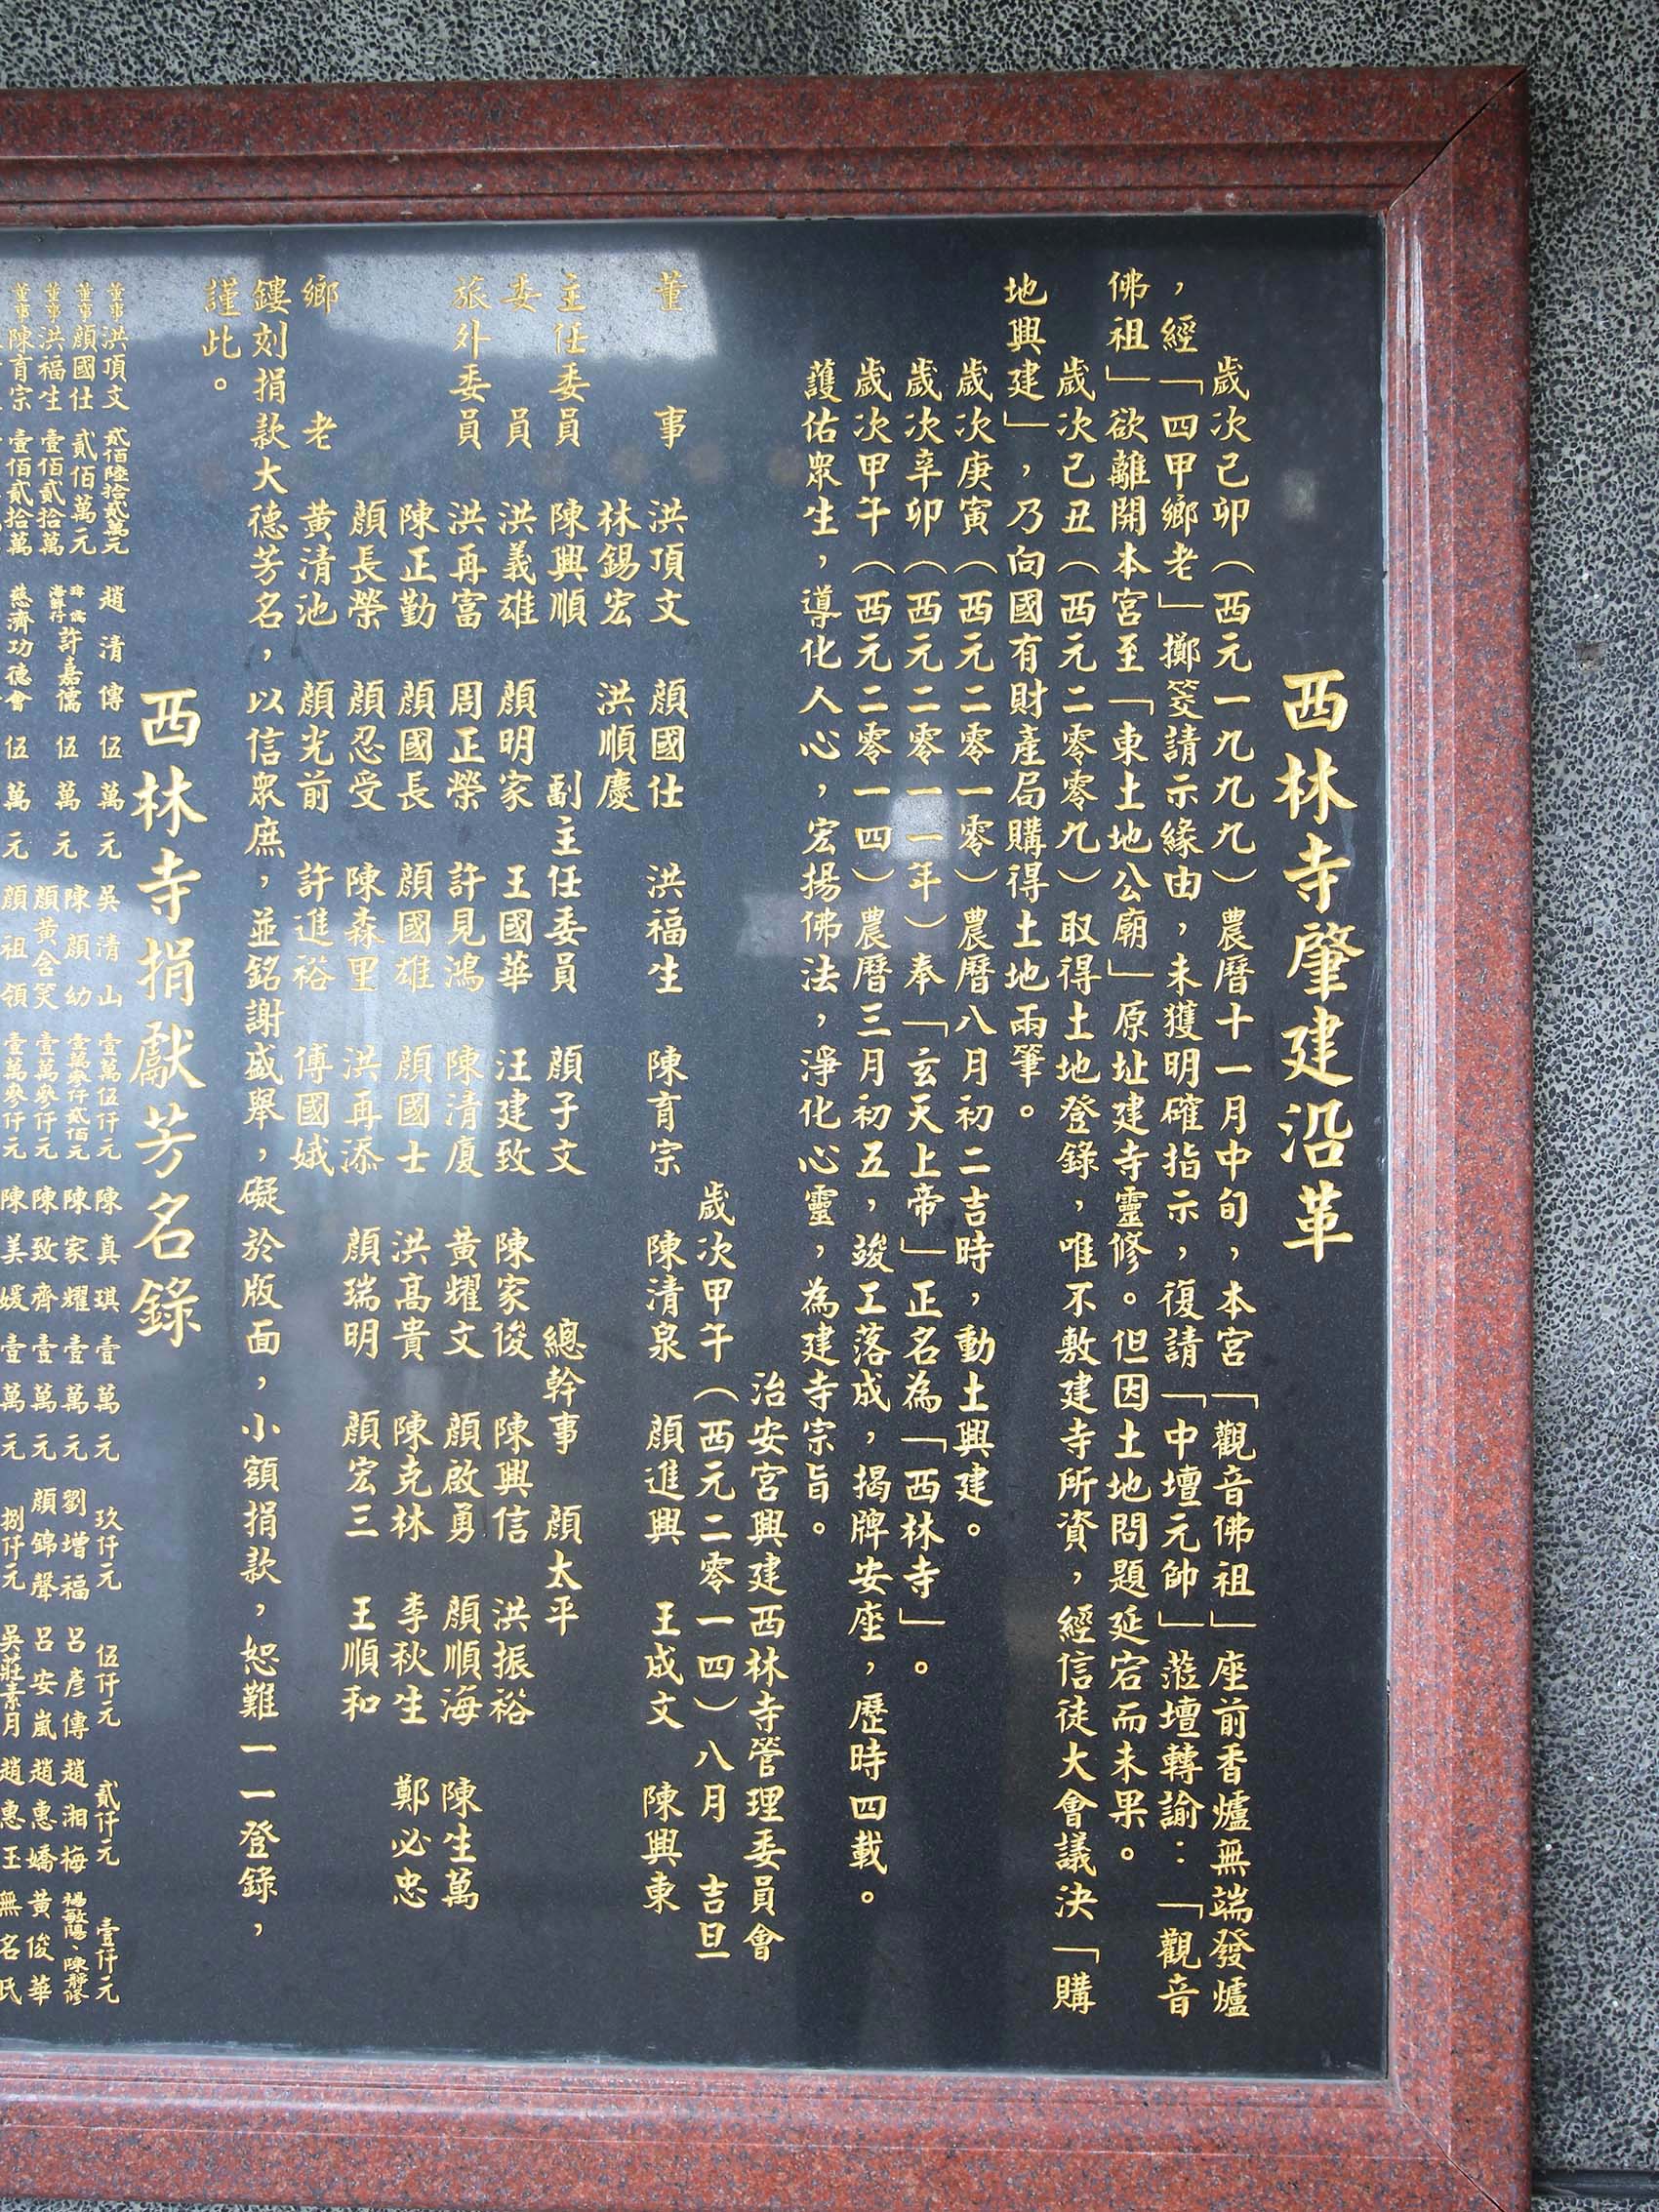 西林寺肇建沿革
歲次己卯（西元一九九九）農曆十一月中旬，本宮「觀音佛祖」座前香爐無端發爐
，經「四甲鄉老」擲筊請示緣由，未獲明確指示，復請「中壇元帥」蒞壇轉諭：「觀音
佛祖」欲離開本宮至「東土地公廟」原址建寺靈修。但因土地問題延宕而未果。
歲次己丑（西元二零零九）取得土地登錄，唯不敷建寺所資，經信徒大會議決「購
地興建」，乃向國有財產局購得土地兩筆。
歲次庚寅（西元二零一零）農曆八月初二吉時，動土興建。
歲次辛卯（西元二零一一年）奉「玄天上帝」正名為「西林寺」。
歲次甲午（西元二零一四）農曆三月初五，竣工落成，揭牌安座，歷時四載。
護佑眾生，導化人心，宏揚佛法，淨化心靈，為建寺宗旨。
治安宮興建西林寺管理委員會
歲次甲午（西元二零一四）八月　吉旦
董事　洪頂文　顏國仕　洪福生　陳育宗　陳清泉　顏進興　王成文　陳興東
林錫宏　洪順慶
主任委員　陳興順　副主任委員　顏子文　總幹事　顏太平
委員　洪義雄　顏明家　王國華　汪建致　陳家俊　陳興信　洪振裕
旅外委員　洪再富　周正榮　許見鴻　陳清廈　黃耀文　顏啟勇　顏順海　陳生萬
陳正勤　顏國長　顏國雄　顏國士　洪高貴　陳克林　李秋生　鄭必忠
顏長榮　顏忍受　陳森里　洪再添　顏瑞明　顏宏三　王順和
鄉老　黃清池　顏光前　許進裕　傅國娀
鏤刻捐款大德芳名，以信眾庶，並銘謝盛舉，礙於版面，小額捐款，恕難一一登錄，
謹此。
西林寺捐獻芳名錄
董事洪頂文　貳佰陸拾貳萬元　趙清傳　伍萬元　吳清山　壹萬伍仟元　陳真琪　壹萬元　玖仟元　伍仟元　貳仟元　壹仟元
董事顏國仕　貳佰萬元　許嘉儒　伍萬元　陳顏幼　壹萬參仟貳佰元　陳家耀　壹萬元　劉增福　呂彥傳　趙湘梅　楊敏陽、陳靜修
董事洪福生　壹佰貳拾萬　顏黃含笑　壹萬參仟元　陳致齊　壹萬元　顏錦聲　呂安嵐　趙惠嬌　黃俊華
董事陳育宗　壹佰貳拾萬　慈濟功德會　伍萬元　顏祖領　壹萬參仟元　陳美媛　壹萬元　捌仟元　吳莊素月　趙惠玉　無名氏